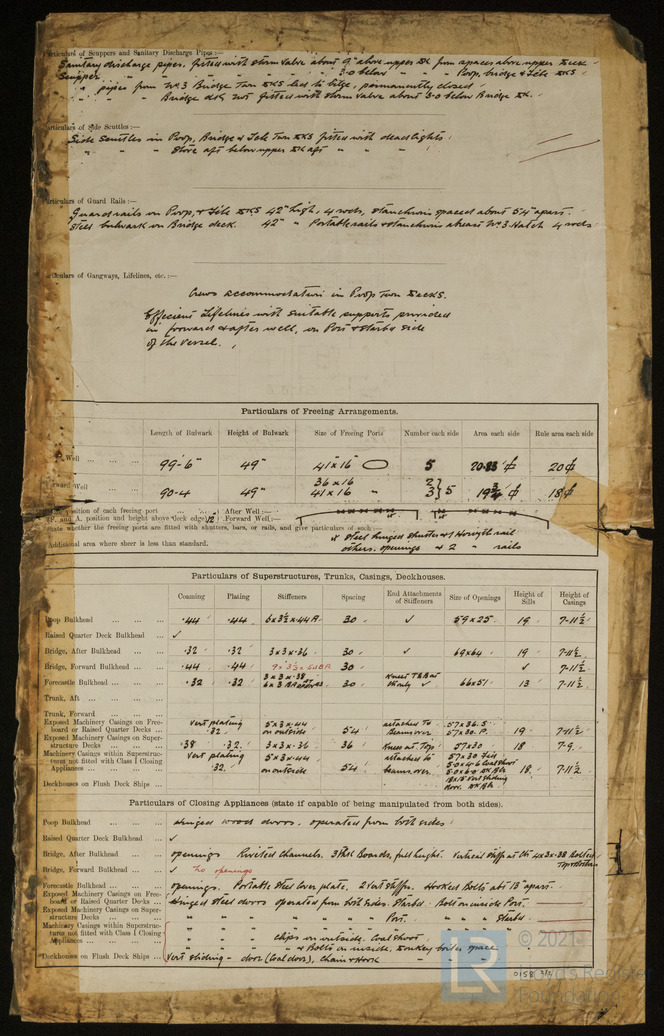 Particulars of Scuppers and Sanitary Discharge Pipes :—
Sanitary discharge pipes, fitted with storm valve about 9" above upper DK from spaces above upper Deck
Scupper " " " " " 3-0 below " " Poop, bridge & Fcle DKS
" pipes from No 3 Bridge Twn DKS led to bilge, permanently closed
" " Bridge dck, not fitted with storm valve about 3-0 below Bridge DK.
Particulars of Side Scuttles :—
Side Scuttles in Poop, Bridge & Fcle Twn DKS fitted with deadlights
" " " Store aft below upper DK aft " " "
Particulars of Guard Rails :—
Guard rails on Poop, & Fcle DKS 42" high, 4 rods, stanchions spaced about 54" apart.
Steel bulwark on Bridge deck. 42" " Portable rails & stanchions abreast No 3 Hatch 4 rods
Particulars of Gangways, Lifelines, etc. :—
Crews accommodation in Poop Twn Decks.
Efficient Lifelines with suitable supports provided
in forward & after well, on Port & Starbd side
of the vessel.
Particulars of Freeing Arrangements.
Length of Bulwark Height of Bulwark Size of Freeing Ports Number each side Area each side Rule area each side
Well 99-6" 49" 41 x 16 5 20
Forward Well 90-4 49" 36 x 16 2
41 x 16 " 3 } 5 18
position of each freeing port After Well :—
(F. and A. position and height above deck edge 12") Forward Well :—
state whether the freeing ports are fitted with shutters, bars, or rails, and give particulars of such :—
Additional area where sheer is less than standard.
others. openings & 2 " rails
Particulars of Superstructures, Trunks, Casings, Deckhouses.
Coaming Plating Stiffeners Spacing End Attachments of Stiffeners Size of Openings Height of Sills Height of Casings
Poop Bulkhead .44 .44 6 x 3½ x .44 A. 30 ✓ 59 x 25 19 7-11½
Raised Quarter Deck Bulkhead ✓
Bridge, After Bulkhead .32 .32 3 x 3 x .36 30 ✓ 69 x 64 19 7-11½
Bridge, Forward Bulkhead .44 .44 30 ✓ 7-11½
Forecastle Bulkhead .32 .32 3 x 3 x .38 30 ✓ 66 x 51 13 7-11½
Trunk, Aft
Trunk, Forward
Exposed Machinery Casings on Free- Vert plating 5 x 3 x .44 attached to 57 x 36. S.
board or Raised Quarter Decks .32 on outside 54 Beams over 57 x 30. P. 19 7-11½
Exposed Machinery Casings on Super-
structure Decks .38 .32 3 x 3 x .36 36 Knees at Top 57 x 30 18 7-9
Machinery Casings within Superstruc- Vert plating 5 x 3 x .44 attached to
tures not fitted with Class I Closing
Appliances .32 on outside 54 beams over. 18 7-11½
Deckhouses on Flush Deck Ships
Particulars of Closing Appliances (state if capable of being manipulated from both sides).
Poop Bulkhead Hinged wood doors. operated from both sides
Raised Quarter Deck Bulkhead ✓
Bridge, After Bulkhead openings Riveted channels. full height.
Bridge, Forward Bulkhead ✓ No openings
Forecastle Bulkhead openings. Portable steel cover plate, 2 Vert stiffrs. Hooked Bolts abt 13" apart.
Exposed Machinery Casings on Free-
board or Raised Quarter Decks Hinged steel doors operated from both sides. Starbd. Bolt on inside Port.
Exposed Machinery Casings on Super-
structure Decks " " " " " Port. " " Starbd
Machinery Casings within Superstruc-
tures not fitted with Class I Closing clips on outside. Coal shoot.
Appliances " " & Bolts on inside. Donkey boiler space
Deckhouses on Flush Deck Ships Vert sliding door (Coal door), Chain & Hook
© 2021
LR
Lloyd's Register
Foundation